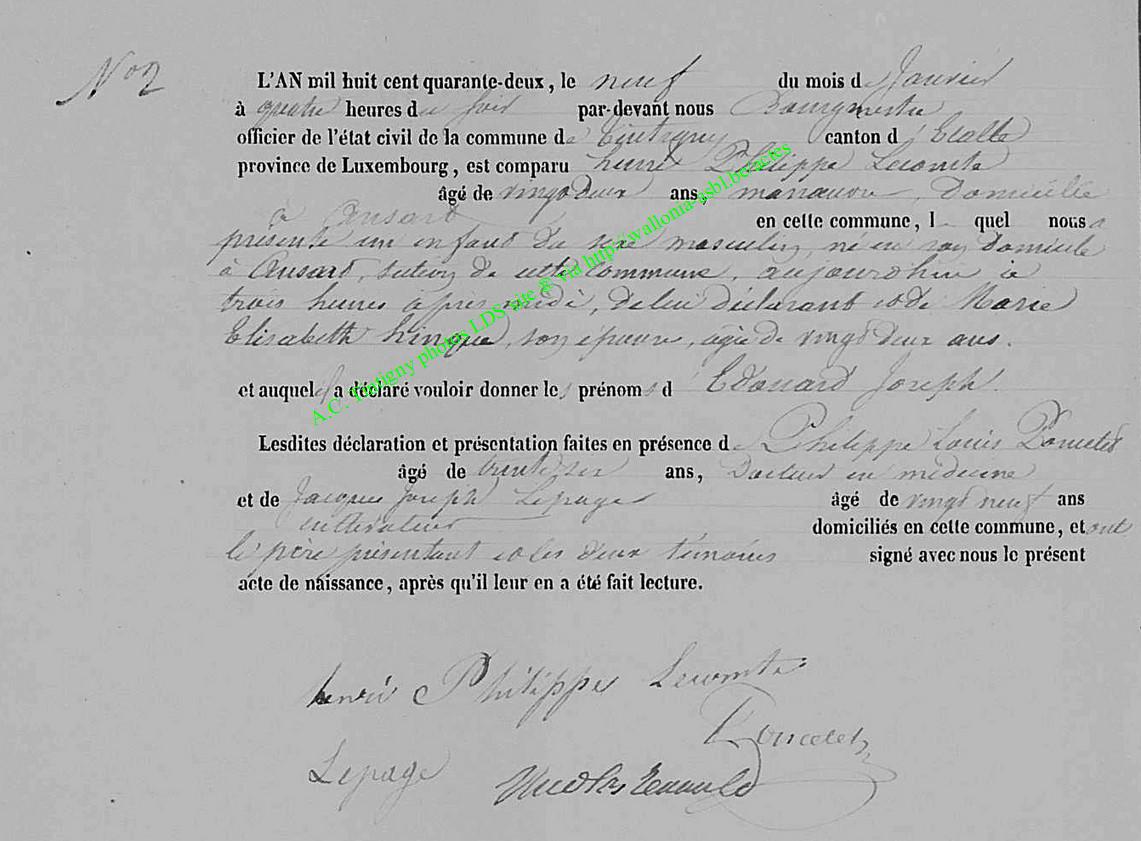 N° 2
L'AN mil huit cent quarante-deux, le neuf du mois de Janvier
à quatre heures du soir par-devant nous Bourgmestre
officier de l'état civil de la commune de Tintigny canton d'Etalle
province de Luxembourg, est comparu henri Philippe Lecomte
âgé de vingt deux ans, manœuvre, domicilié
à Ansart en cette commune, lequel nous a
présenté un enfant du sexe masculin, né en son domicile
à Ansart, section de cette commune, aujourd'hui à
trois heures après midi, de lui déclarant et de Marie
Elisabeth, son épouse, agée de vingt deux ans.
et auquel il a déclaré vouloir donner les prénoms d'Edouard Joseph.
Lesdites déclaration et présentation faites en présence de Philippe Louis Poncelet
âgé de trente six ans, Docteur en médecine
et de Jacques Joseph Lepage âgé de vingt neuf ans
cultivateur domiciliés en cette commune, et ont
le père présentant et les deux témoins signé avec nous le présent
acte de naissance, après qu'il leur en a été fait lecture.
A.C. Tintigny photos LDS site & via http://wallonia-asbl.be/actes
henri Philippe Lecomte
Poncelet
Lepage Nicolas